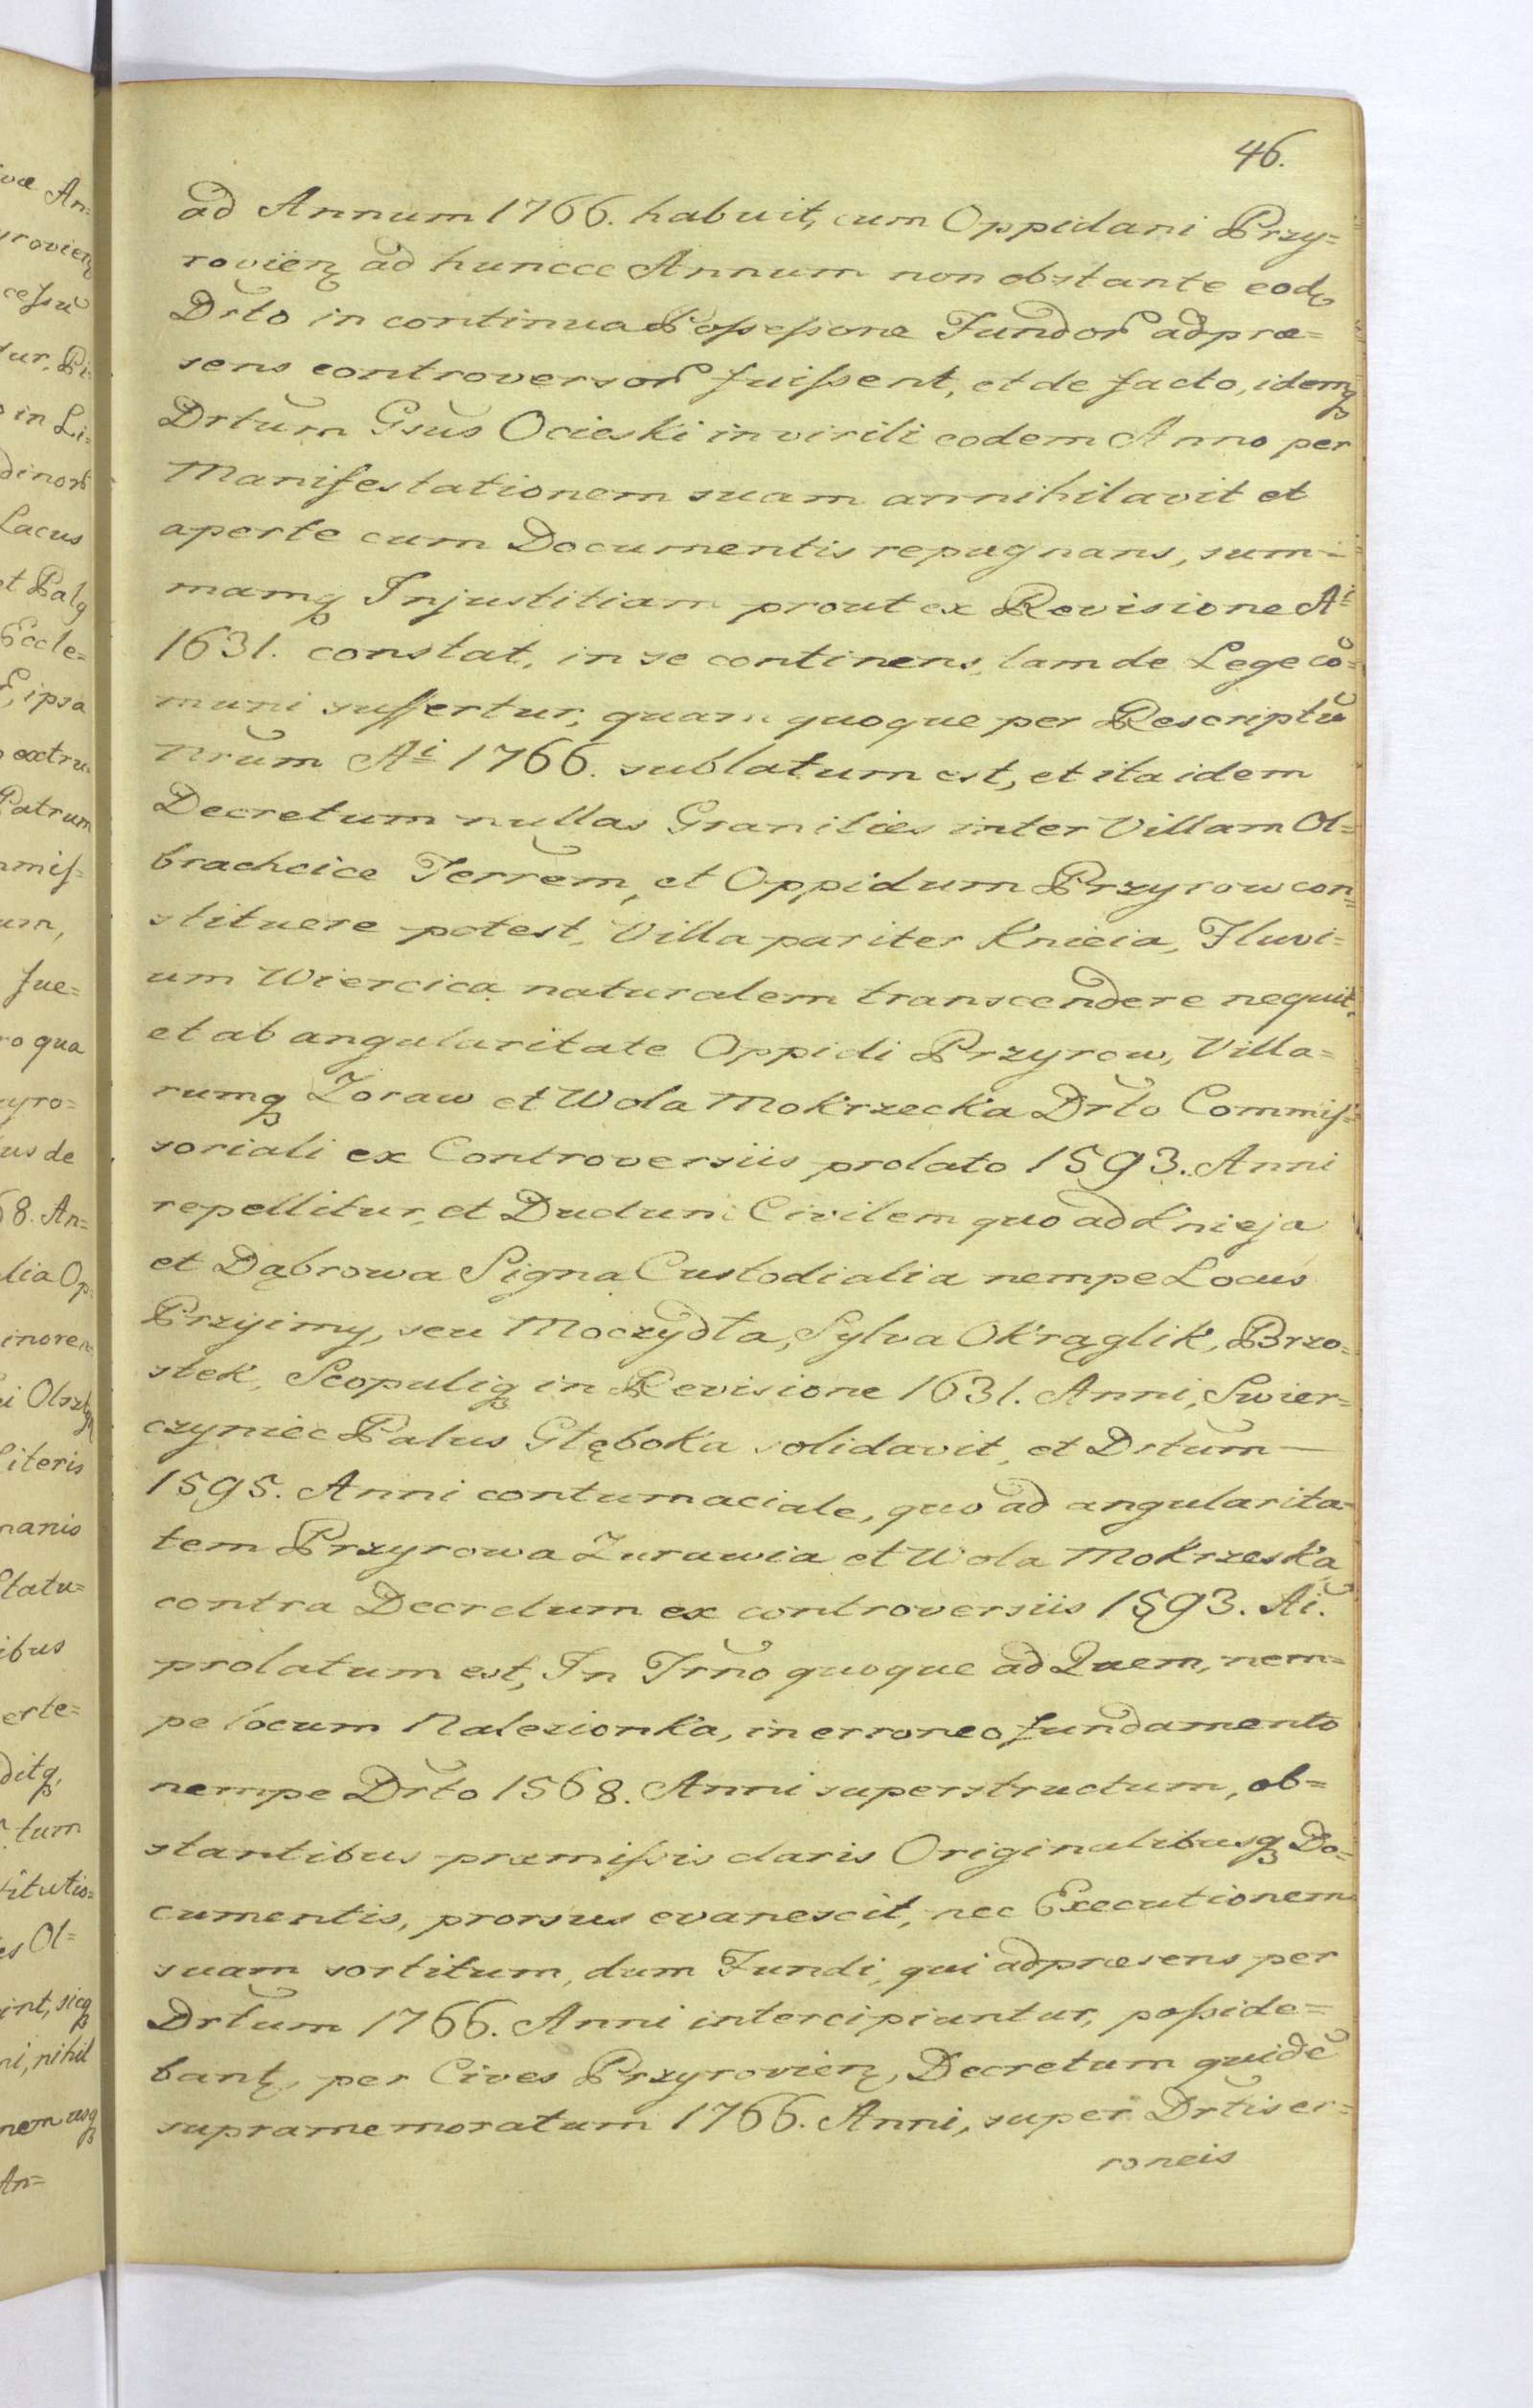 46.
ad Annum 1766. habuit, cum Oppidani Przy=
rovien ad huncce Annum non obstante eod
Drto in continua Possessione Fundor adprae=
sens controversor fuissent, et de facto, idemq
Drtum Gsus Ocieski in virili eodem Anno per
Manifestationem suam annihilavit et
aperte cum Documentis repugnans, sum=
mamq Injustitiam prout ex Revisione Ai
1631. constat, in se continens, tam de Lege co=
muni suffertur, quam quoque per Rescriptu
Nrum Ai 1766. sublatum est, et ita idem
Decretum nullas Granities inter Villam Ol=
brachcice Terrem, et Oppidum Przyrow con=
stituere potest, Villa pariter Knieia, Fluvi=
um Wiercica naturalem transcendere nequit,
et ab angularitate Oppidi Przyrow, Villa=
rumq Zoraw et Wola Mokrzecka Drto Commis=
soriali ex Controversiis prolato 1593. Anni
repellitur, et Ductum Civilem quo ad Knieja
et Dąbrowa Signa Custodialia nempe Locus
Przyimy, seu Moczydła, Sylva Okrąglik, Brzo=
stek, Scopuliq in Revisione 1631. Anni, Swier=
czyniec Palus Głęboka solidavit, et Drtum —
1595. Anni contumaciale, quo ad angularita=
tem Przyrowa Zurawia et Wola Mokrzeska
contra Decretum ex controversiis 1593. Ai.
prolatum est, In Trno quoque ad Quem, nem=
pe locum Nalezionka, in erroneo fundamento
nempe Drto 1568. Anni superstructum, ob=
stantibus praemissis claris Originalibusq Do=
cumentis, prorsus evanescit, nec Executionem
suam sortitum, dum Fundi, qui adpraesens per
Drtum 1766. Anni intercipiuntur, posside=
bant, per Cives Przyrovien, Decretum quide
supramemoratum 1766. Anni, super Drtis er=
roneis